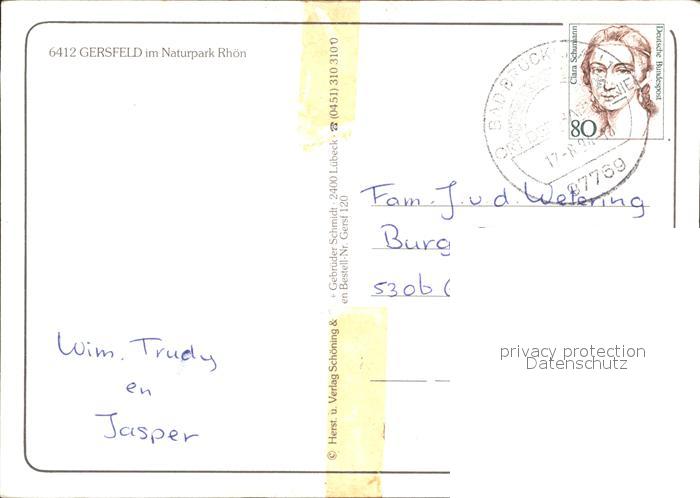 6412 GERSFELD im Naturpark Rhön
Clara Schumann
Deutsche Bundespost
80
BAD BRÜCKENAU
97769
Fam. J. v. d. Wetering
Burg
5306
Wim. Trudy
en
Jasper
© Herst. u. Verlag Schöning &
Gebrüder Schmidt · 2400 Lübeck · ☎ (0451) 310 310
en Bestell-Nr. Gersf 120
privacy protection
Datenschutz